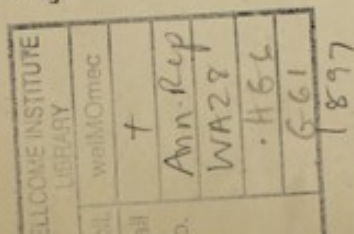 WELLCOME INSTITUTE
LIBRARY
Coll. welMOmec
Call +
No. Ann. Rep
WA28
.H66
G61
1897